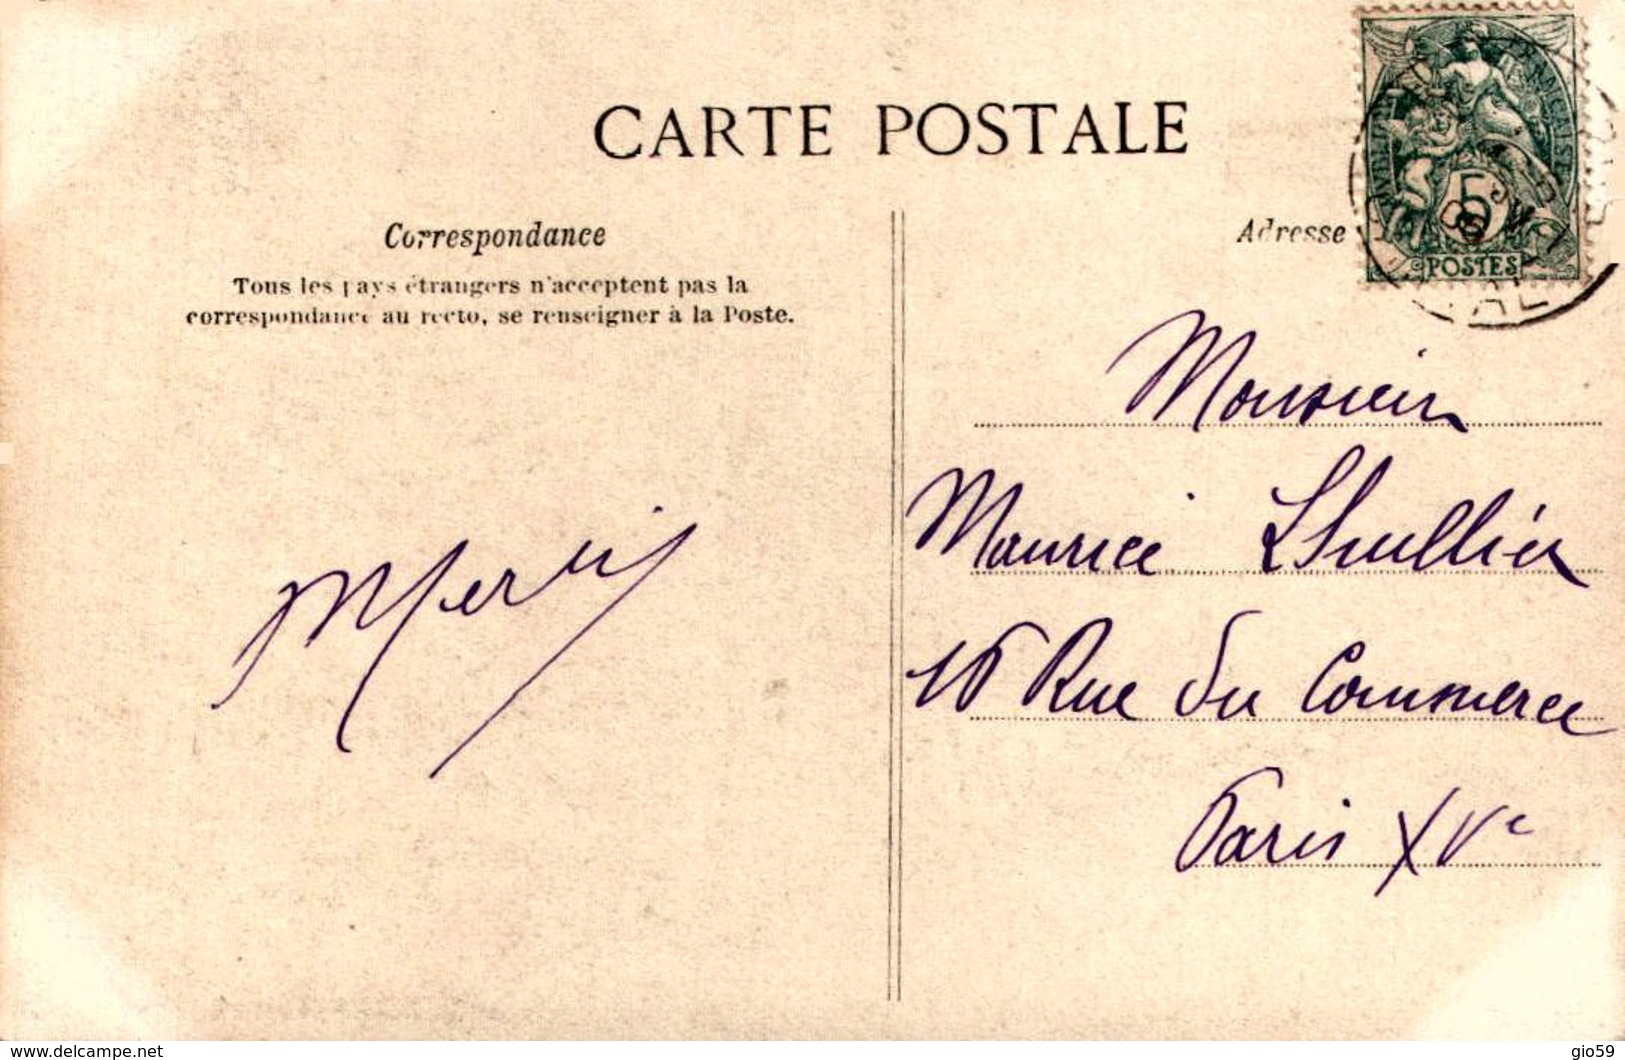 CARTE POSTALE
Correspondance
Tous les pays étrangers n'acceptent pas la
correspondance au recto, se renseigner à la Poste.
Adresse
5
POSTES
Monsieur
Maurice Lhullier
16 Rue du Commerce
Paris XVe
www.delcampe.net
gio59